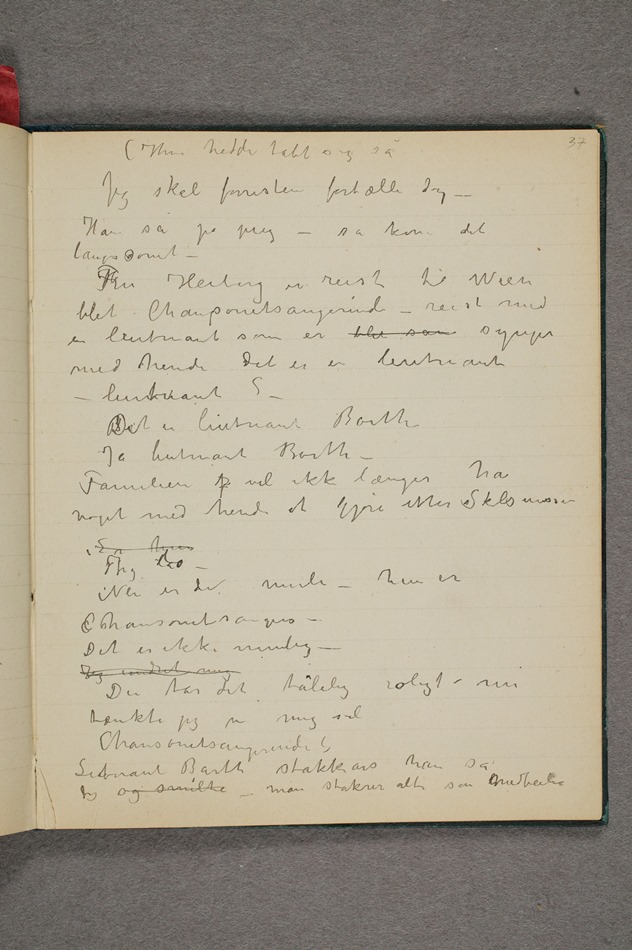 37
(Hun hadde tabt sig så
Jeg skal forresten fortælle dig —
Han så på mig — så kom det
langsomt —
Fru Heiberg er reist til Wien
blet Chansonetsangerinde — reist med
en leutnant som er blit som synger
med hende Det er en leutnant
— leutnant S —
Det er liutnant Barth
Ja liutnant Barth —
Familien vil ikke længer ha
noget med hende at gjøre efter
Nei er det mulig — hun er
Chansonetsanger —
Det er ikke mulig —
Jeg mig
Du tar det tålelig roligt — nu
tænkte jeg ved mig sel
Chansonetsangerinde!
Leutnant Barth stakkars han så
og smilte — man stakrer alle som